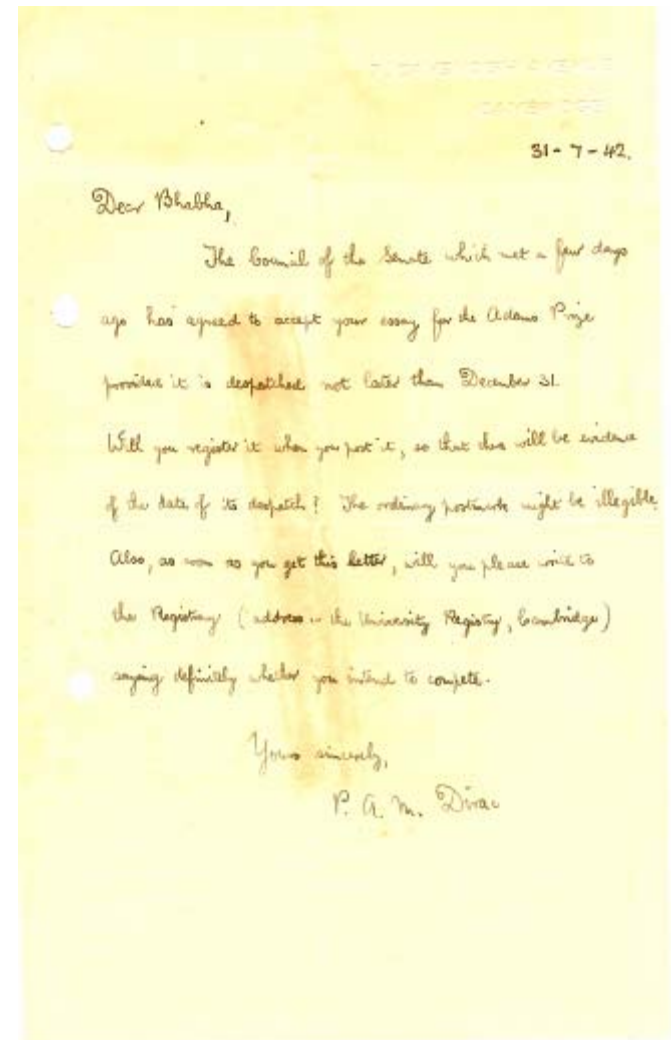 CAVENDISH AVENUE
CAMBRIDGE
31-7-42.
Dear Bhabha,
The Council of the Senate which met a few days
ago has agreed to accept your essay for the Adams Prize
provided it is despatched not later than December 31.
Will you register it when you post it, so that there will be evidence
of the date of its despatch? The ordinary postmark might be illegible.
Also, as soon as you get this letter, will you please write to
the Registrary (address - the University Registry, Cambridge)
saying definitely whether you intend to compete.
Yours sincerely,
P. A. M. Dirac